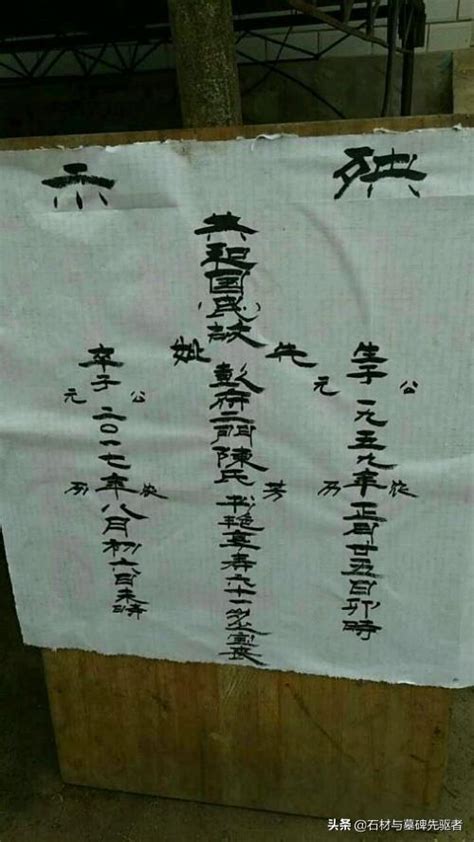 殃示
生于公元一九五九年农历正月廿五日卯時
共和国民故先妣彭府二門陳氏芳艳享寿六十一
卒于公元二〇一七年农历八月初六日未時
头条 @石材与墓碑先驱者